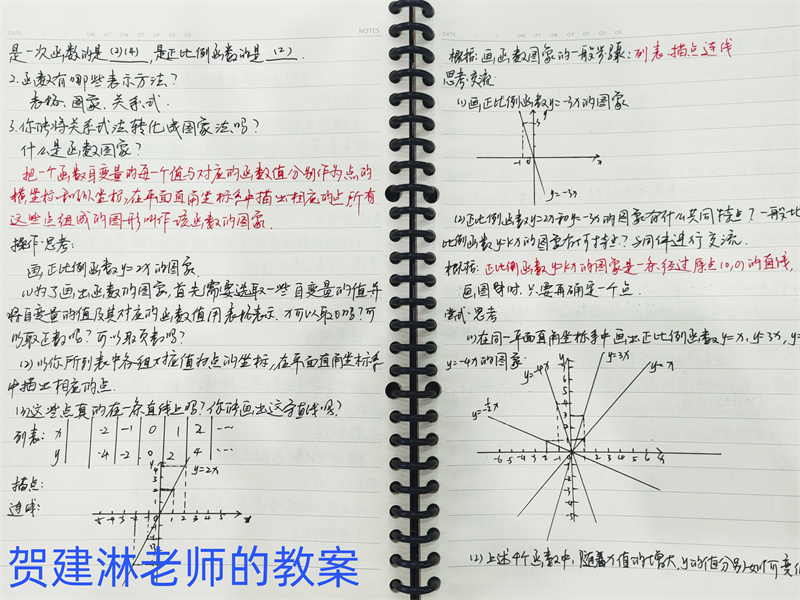 是一次函数的是 (2)(4) ,是正比例函数的是 (2) .
2.函数有哪些表示方法?
表格、图象、关系式.
3.你能将关系式法转化成图象法吗?
什么是函数图象?
把一个函数自变量的每一个值与对应的函数值分别作为点的
横坐标和纵坐标,在平面直角坐标系中描出相应的点,所有
这些点组成的图形叫作该函数的图象.
操作·思考:
画正比例函数y=2x的图象.
(1)为了画出函数的图象,首先需要选取一些自变量的值,并
将自变量的值及其对应的函数值用表格表示.x可以取0吗?可
以取正数吗?可以取负数吗?
(2)以你所列表中各组对应值为点的坐标,在平面直角坐标系
中描出相应的点.
(3)这些点真的在一条直线上吗?你能画出这条直线吗?
列表: x -2 -1 0 1 2 ···
y -4 -2 0 2 4 ···
描点:
连线:
y=2x
贺建淋老师的教案
NOTES
DATE
概括:画函数图象的一般步骤:列表、描点、连线
思考·交流
(1)画正比例函数y=-3x的图象
y=-3x
(2)正比例函数y=2x和y=-3x的图象有什么共同特点?一般
比例函数y=kx的图象有何特点?与同伴进行交流.
概括:正比例函数y=kx的图象是一条经过原点(0,0)的直线,
画图时,只要再确定一个点.
尝试·思考
(1)在同一平面直角坐标系中画出正比例函数y=x,y=3x,
y=-4x的图象
y=-4x y=3x y=x
y=-½x
-6 -5 -4 -3 -2 -1 1 2 3 4 5 6 x
(2)上述4个函数中,随着x值的增大,y的值分别如何变化